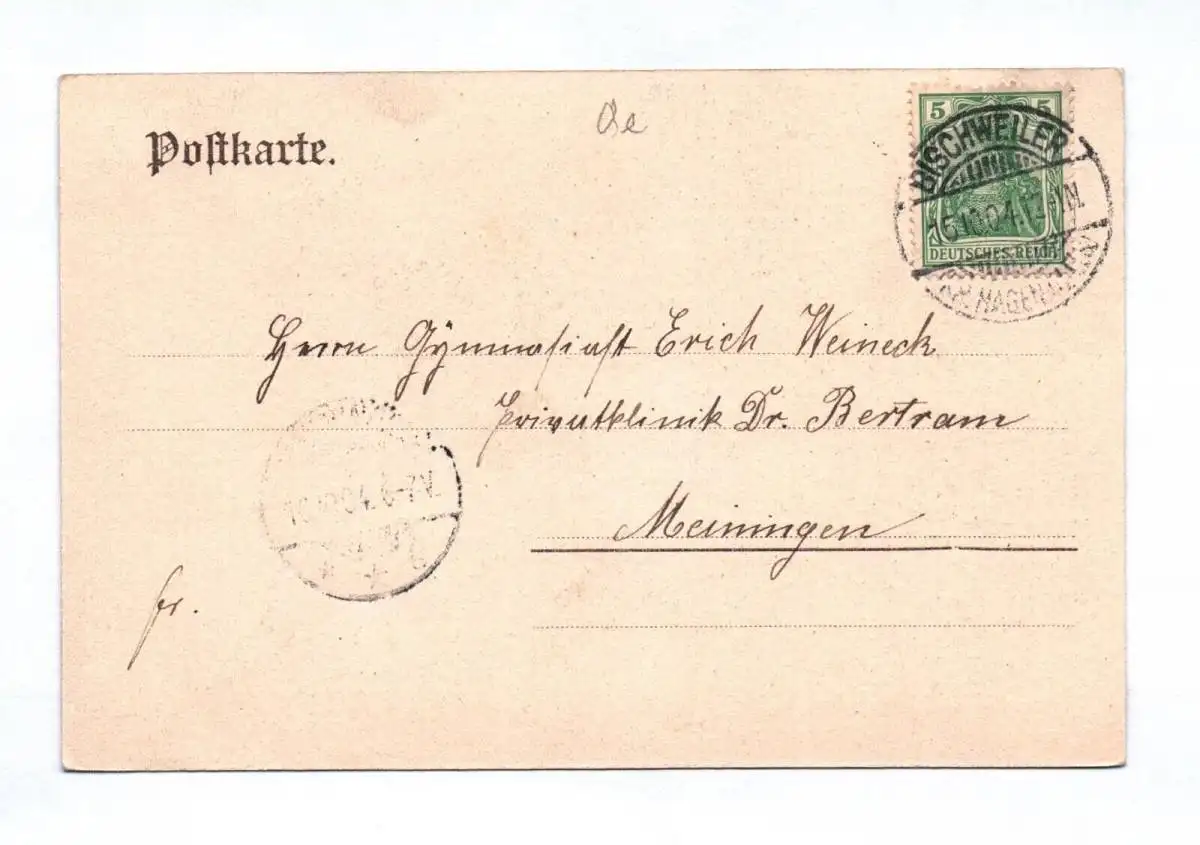 Postkarte.
Qe
5 5
DEUTSCHES REICH
BISCHWEILER
15.10.04.
HAGENAU
Herrn Gymnasiast Erich Weineck
Privatklinik Dr. Bertram
Meiningen
16.10.04. 6-7V.
fr.